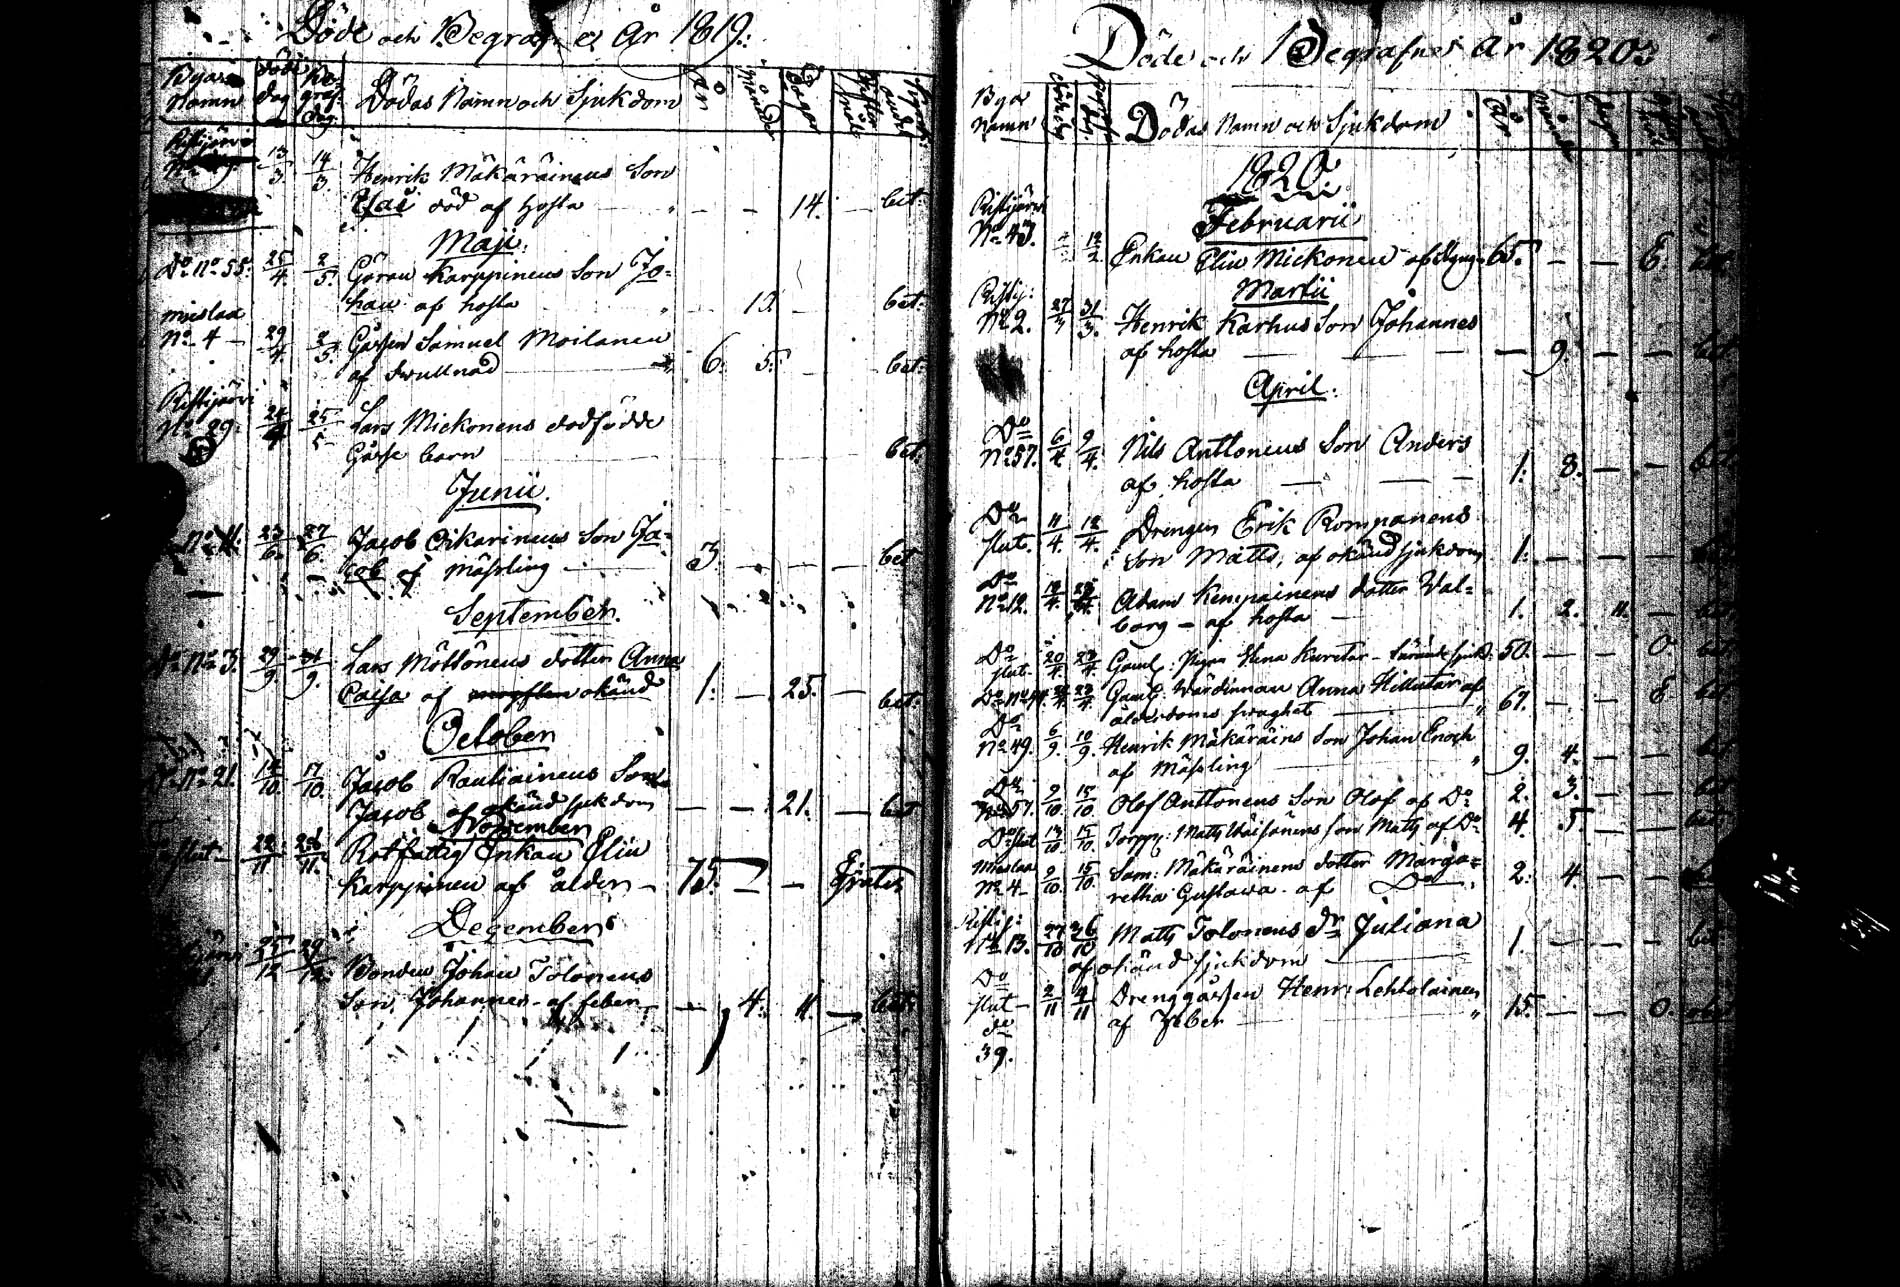 Döde och Begrafne År 1819:
Byars Namn döde dag be- graf: dag. Dödas Namn och Sjukdom År Månader Dagar
Ristijärvi
13/3. 14/3. Henrik Mäkäräinens Son
Esai död af hosta — — 14. — bet:
Maji.
Do No 55. 25/4. 2/5. Göran Karppinens Son Jo=
han af hosta 10. bet:
Mieslaa
No 4 — 29/4. 2/5. Gåssen Samuel Moilanen
af svullnad 6. 5. bet:
Ristijärvi
No 29. 24/4 25/5 Lars Mickonens dödfödde
Gåsse barn bet:
Junii.
No 11. 23/6. 27/6. Jacob Oikarinens Son Ja=
cob af Mässling 3. — — — bet
September.
Do No 3. 29/9. /9. Lars Möttönens dotter Anna
Caisa af okänd 1. — 25. — bet:
October
No 21. 14/10. 17/10. Jacob Rautiainens Son
Jacob af okänd sjukdom — — 21. — bet
November
slut — 22/11 28/11. Rotfattig Enkan Elin
Karppinen af ålder — 75. — — Gratis
December
25/12 29/12. Bonden Johan Tolonens
Son Johannes — af feber — — 4. 11. — bet:
Döde och Begrafne År 1820:
Byar Namn Dödas Namn och Sjukdom År
1820.
Februarii
Ristijärvi
No 43. 12/2 Enkan Elin Mickonen af 65. — — E. bet
Martii
Ristij:
No 2. 27/3 31/3. Henrik Karhus Son Johannes
af hosta — — — — 9. — — bet
April.
Do
No 57. 6/4 9/4. Nils Anttonens Son Anders
af hosta — — — 1. 8. — — bet.
Do
slut. 11/4. 12/4. Drengen Erik Rompanens
Son Matts, af okänd sjukdom 1. — — —
Do
No 12. 12/4. 23/4. Adam Kemppainens dotter Wal=
borg — af hosta — 1. 2. 11. — bet
Do
slut. 20/4. 23/4. Gaml: Pigan Elena Kuretar — sjukd: 50. — — O bet
Do No 44. 23/4. Gaml: Wärdinnan Anna Hillutar af
ålderdoms svaghet — 67. — — E bet
Do
No 49. 6/9. 10/9. Henrik Mäkäräins Son Johan Enoch
af Mässling 9. 4. — — bet
Do
No 57. 9/10. 15/10. Olof Anttonens Son Olof af Do 2. 3. — — bet
Do slut 13/10. 15/10. Torpp: Matts Wäisänens son Matts af Do 4. 5. — — bet.
Mieslaa
No 4 — 9/10. 15/10. Sam: Mäkäräinens dotter Marga=
retha Gustava af Do 2. 4. — —
Ristij:
No 13. 27/10 26/10 Matts Tolonens Dr Juliana
af okänd sjukdom — 1. — — — bet
Do
slut — 2/11 4/11 Drenggåssen Henr: Lehtolainen
af Feber — 15. — — O.
39.